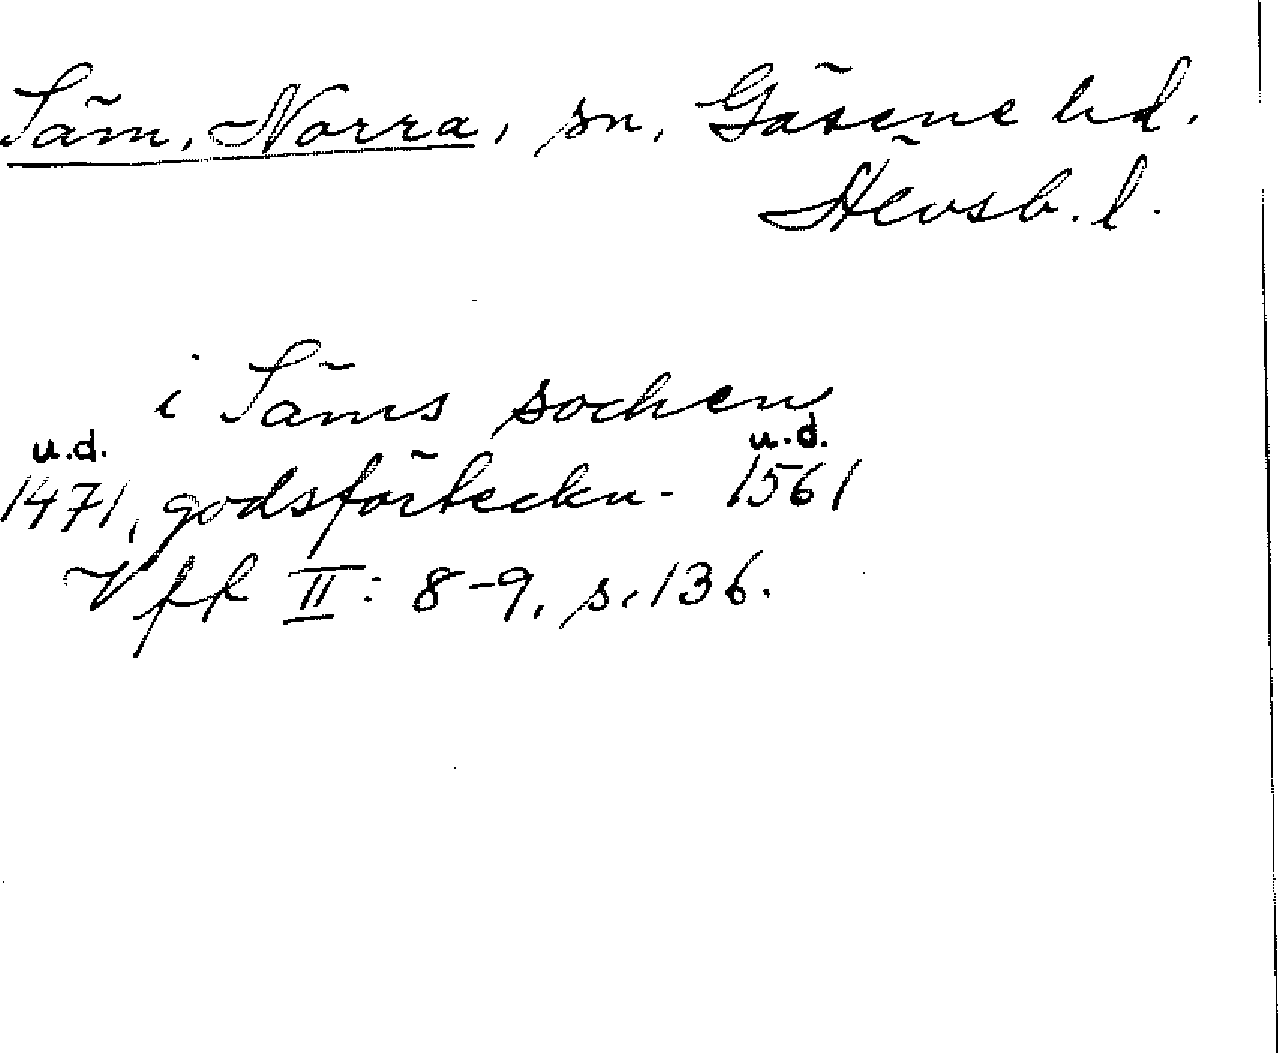 Säm, Norra, sn, Gäsene hd.
Älvsb. l.
i Säms sochen
u.d. u.d.
1471, godsförteckn. 1561
Vff II: 8-9, s. 136.